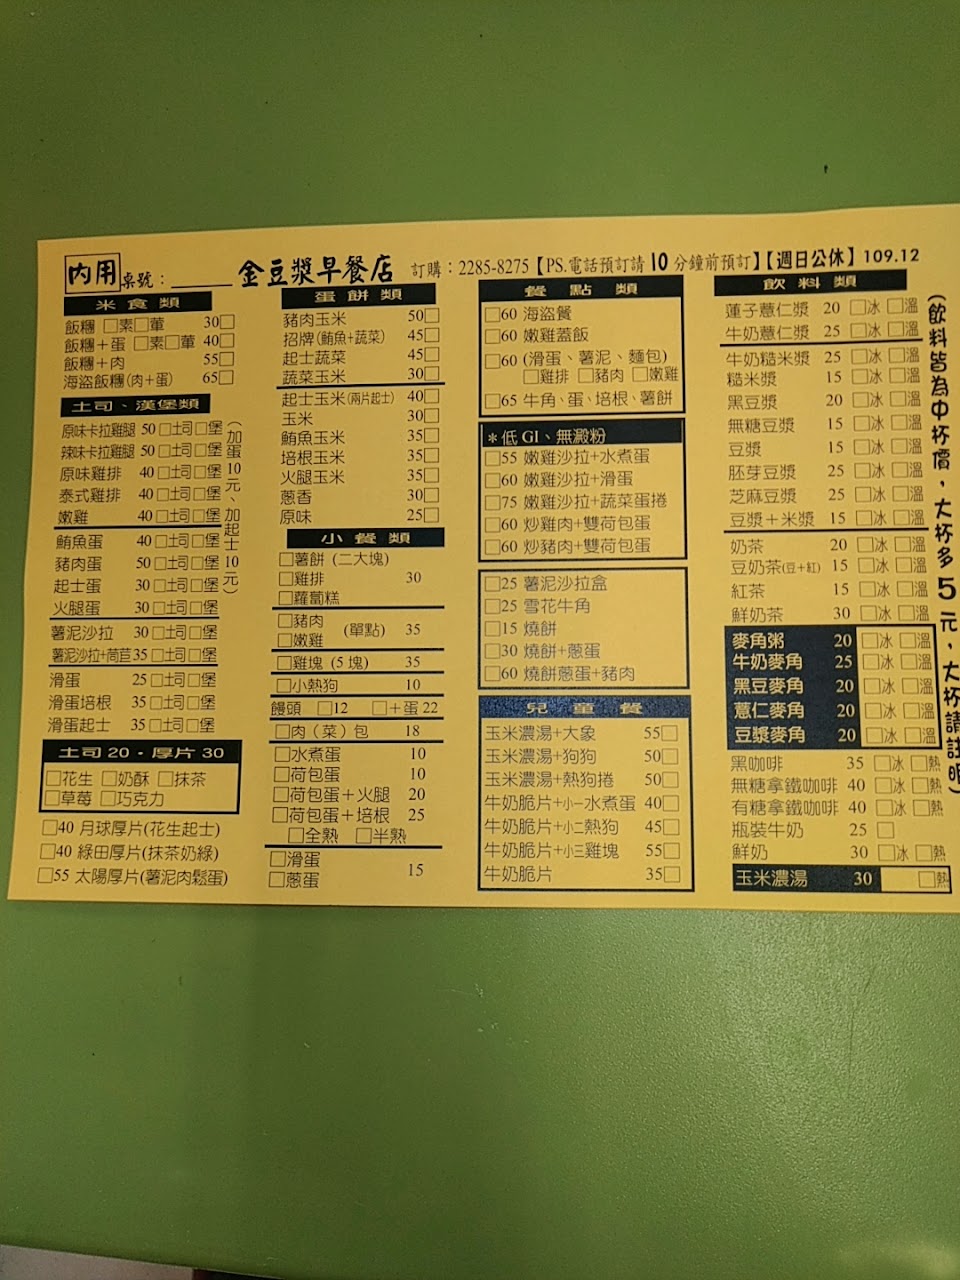 內用 桌號：______ 金豆漿早餐店 訂購：2285-8275【PS.電話預訂請10分鐘前預訂】【週日公休】109.12
米食類
飯糰 □素□葷 30□
飯糰＋蛋 □素□葷 40□
飯糰＋肉 55□
海盜飯糰(肉＋蛋) 65□
土司、漢堡類
原味卡拉雞腿 50 □土司□堡
辣味卡拉雞腿 50 □土司□堡
原味雞排 40 □土司□堡
泰式雞排 40 □土司□堡
嫩雞 40 □土司□堡
鮪魚蛋 40 □土司□堡
豬肉蛋 50 □土司□堡
起士蛋 30 □土司□堡
火腿蛋 30 □土司□堡
薯泥沙拉 30 □土司□堡
薯泥沙拉+萵苣 35 □土司□堡
滑蛋 25 □土司□堡
滑蛋培根 35 □土司□堡
滑蛋起士 35 □土司□堡
(加蛋10元、加起士10元)
土司 20・厚片 30
□花生 □奶酥 □抹茶
□草莓 □巧克力
□40 月球厚片(花生起士)
□40 綠田厚片(抹茶奶綠)
□55 太陽厚片(薯泥肉鬆蛋)
蛋餅類
豬肉玉米 50□
招牌(鮪魚+蔬菜) 45□
起士蔬菜 45□
蔬菜玉米 30□
起士玉米(兩片起士) 40□
玉米 30□
鮪魚玉米 35□
培根玉米 35□
火腿玉米 35□
蔥香 30□
原味 25□
小餐類
□薯餅 (二大塊)
□雞排 30
□蘿蔔糕
□豬肉
□嫩雞 (單點) 35
□雞塊 (5塊) 35
□小熱狗 10
饅頭 □12 □＋蛋 22
□肉（菜）包 18
□水煮蛋 10
□荷包蛋 10
□荷包蛋＋火腿 20
□荷包蛋＋培根 25
□全熟 □半熟
□滑蛋
□蔥蛋 15
餐點類
□60 海盜餐
□60 嫩雞蓋飯
□60 (滑蛋、薯泥、麵包)
□雞排 □豬肉 □嫩雞
□65 牛角、蛋、培根、薯餅
＊低 GI、無澱粉
□55 嫩雞沙拉+水煮蛋
□60 嫩雞沙拉+滑蛋
□75 嫩雞沙拉+蔬菜蛋捲
□60 炒雞肉+雙荷包蛋
□60 炒豬肉+雙荷包蛋
□25 薯泥沙拉盒
□25 雪花牛角
□15 燒餅
□30 燒餅+蔥蛋
□60 燒餅蔥蛋+豬肉
兒童餐
玉米濃湯+大象 55□
玉米濃湯+狗狗 50□
玉米濃湯+熱狗捲 50□
牛奶脆片+小一水煮蛋 40□
牛奶脆片+小二熱狗 45□
牛奶脆片+小三雞塊 55□
牛奶脆片 35□
飲料類
蓮子薏仁漿 20 □冰 □溫
牛奶薏仁漿 25 □冰 □溫
牛奶糙米漿 25 □冰 □溫
糙米漿 15 □冰 □溫
黑豆漿 20 □冰 □溫
無糖豆漿 15 □冰 □溫
豆漿 15 □冰 □溫
胚芽豆漿 25 □冰 □溫
芝麻豆漿 25 □冰 □溫
豆漿＋米漿 15 □冰 □溫
奶茶 20 □冰 □溫
豆奶茶(豆+紅) 15 □冰 □溫
紅茶 15 □冰 □溫
鮮奶茶 30 □冰 □溫
麥角粥 20 □冰 □溫
牛奶麥角 25 □冰 □溫
黑豆麥角 20 □冰 □溫
薏仁麥角 20 □冰 □溫
豆漿麥角 20 □冰 □溫
黑咖啡 35 □冰 □熱
無糖拿鐵咖啡 40 □冰 □熱
有糖拿鐵咖啡 40 □冰 □熱
瓶裝牛奶 25 □
鮮奶 30 □冰 □熱
玉米濃湯 30 □熱
(飲料皆為中杯價，大杯多5元，大杯請註明)